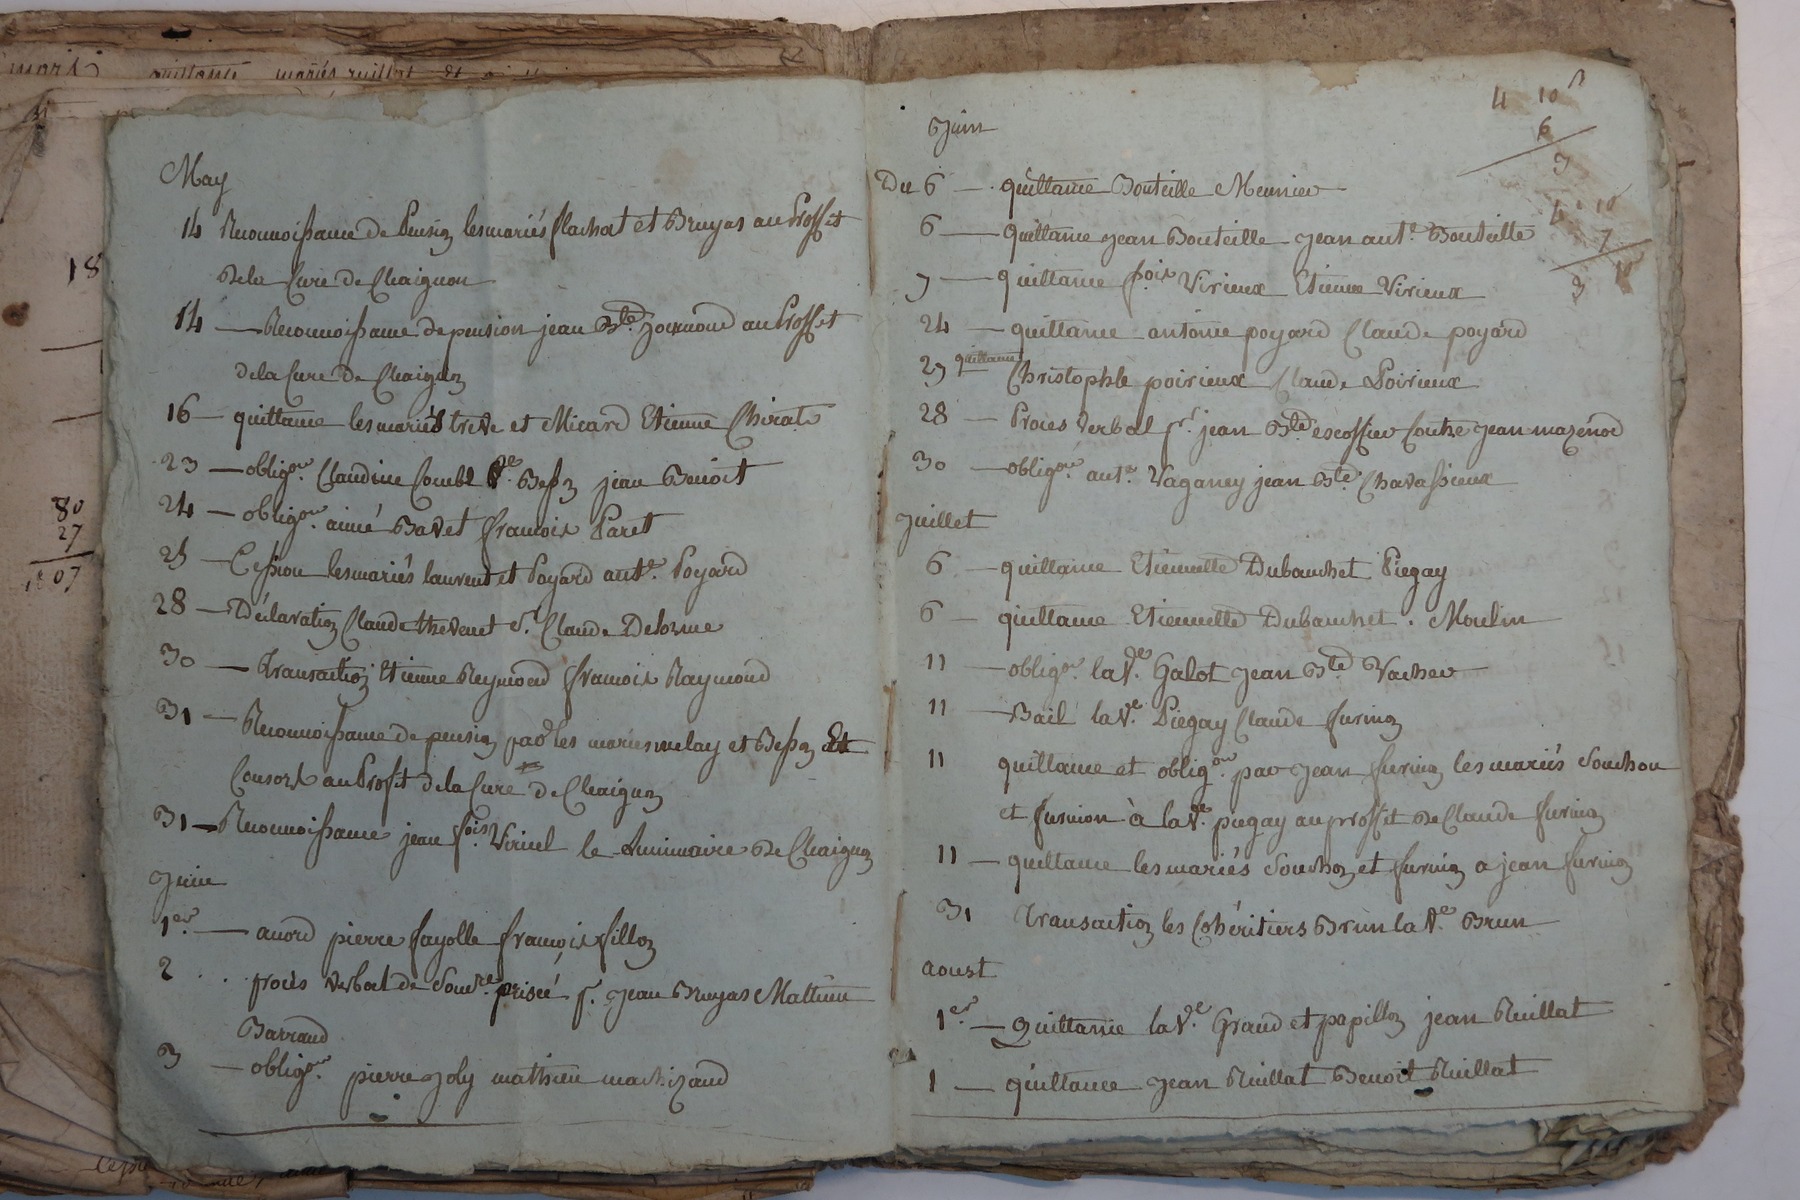 mors quittance mariés ruillat et
May
14 Reconnoissance de Pension les mariés flachat et Bruyas au Proffit
de la Cure de Chaignon
14 — Reconnoissance de pension jean Bte. journoud au Proffit
de la Cure de Chaignon
16 — quittance les mariés treve et Micard Etienne Chirat
23 — obligon. Claudine Combe Ve. Besson jean Benoit
24 — obligon. aimé Bavet francois Paret
25 — Cession les mariés laurent et Poyard ante. Poyard
28 — Déclaration Claude thevenet Sr. Claude Delorme
30 — Transaction Etienne Reymond francois Raymond
31 — Reconnoissance de pension par les mariés melay et Besson Et
Consort au Profit de la Cure de Chaignon
31 — Reconnoissance jean fois Viricel le Luminaire de Chaignon
Juin
1er — acord pierre fayolle françois fillon
2 procès verbal de Souvre. prisée Sr. jean Bruyas Mathieu
Barraud
3 — obligon. pierre Joly mathieu machizaud
18
80
27
107
Juin
Du 6 — quittance Bouteille Meunier
6 — quittance jean Bouteille jean ante. Bouteille
7 — quittance fois Virieux Etienne Virieux
24 — quittance antoine poyard Claude poyard
27 quittance Christophle poirieux Claude Poirieux
28 — Procès verbal Sr. jean Bte escoffier Contre jean mazenod
30 — obligon. ante Vaganey jean Bte Chavassieux
Juillet
6 — quittance Etiennette Dubouchet Piegay
6 — quittance Etiennette Dubouchet . Moulin
11 — obligon. la Ve. Galot jean Bte Vacher
11 — Bail la Ve. Piegay Claude furnion
11 quittance et obligon. par jean furnion les mariés Souchon
et furnion à la Ve. piegay au proffit de Claude furnion
11 — quittance les mariés Souchon et furnion a jean furnion
31 Transaction les Cohéritiers Brun la Ve. Brun
aoust
1er — Quittance la Ve. Graud et papillon jean Ruillat
1 — quittance jean Ruillat Benoit Ruillat
4 10
6
4 10
7